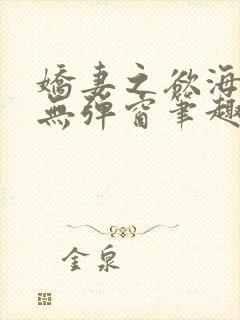 嬌妻之欲海
無彈窗筆趣
金泉